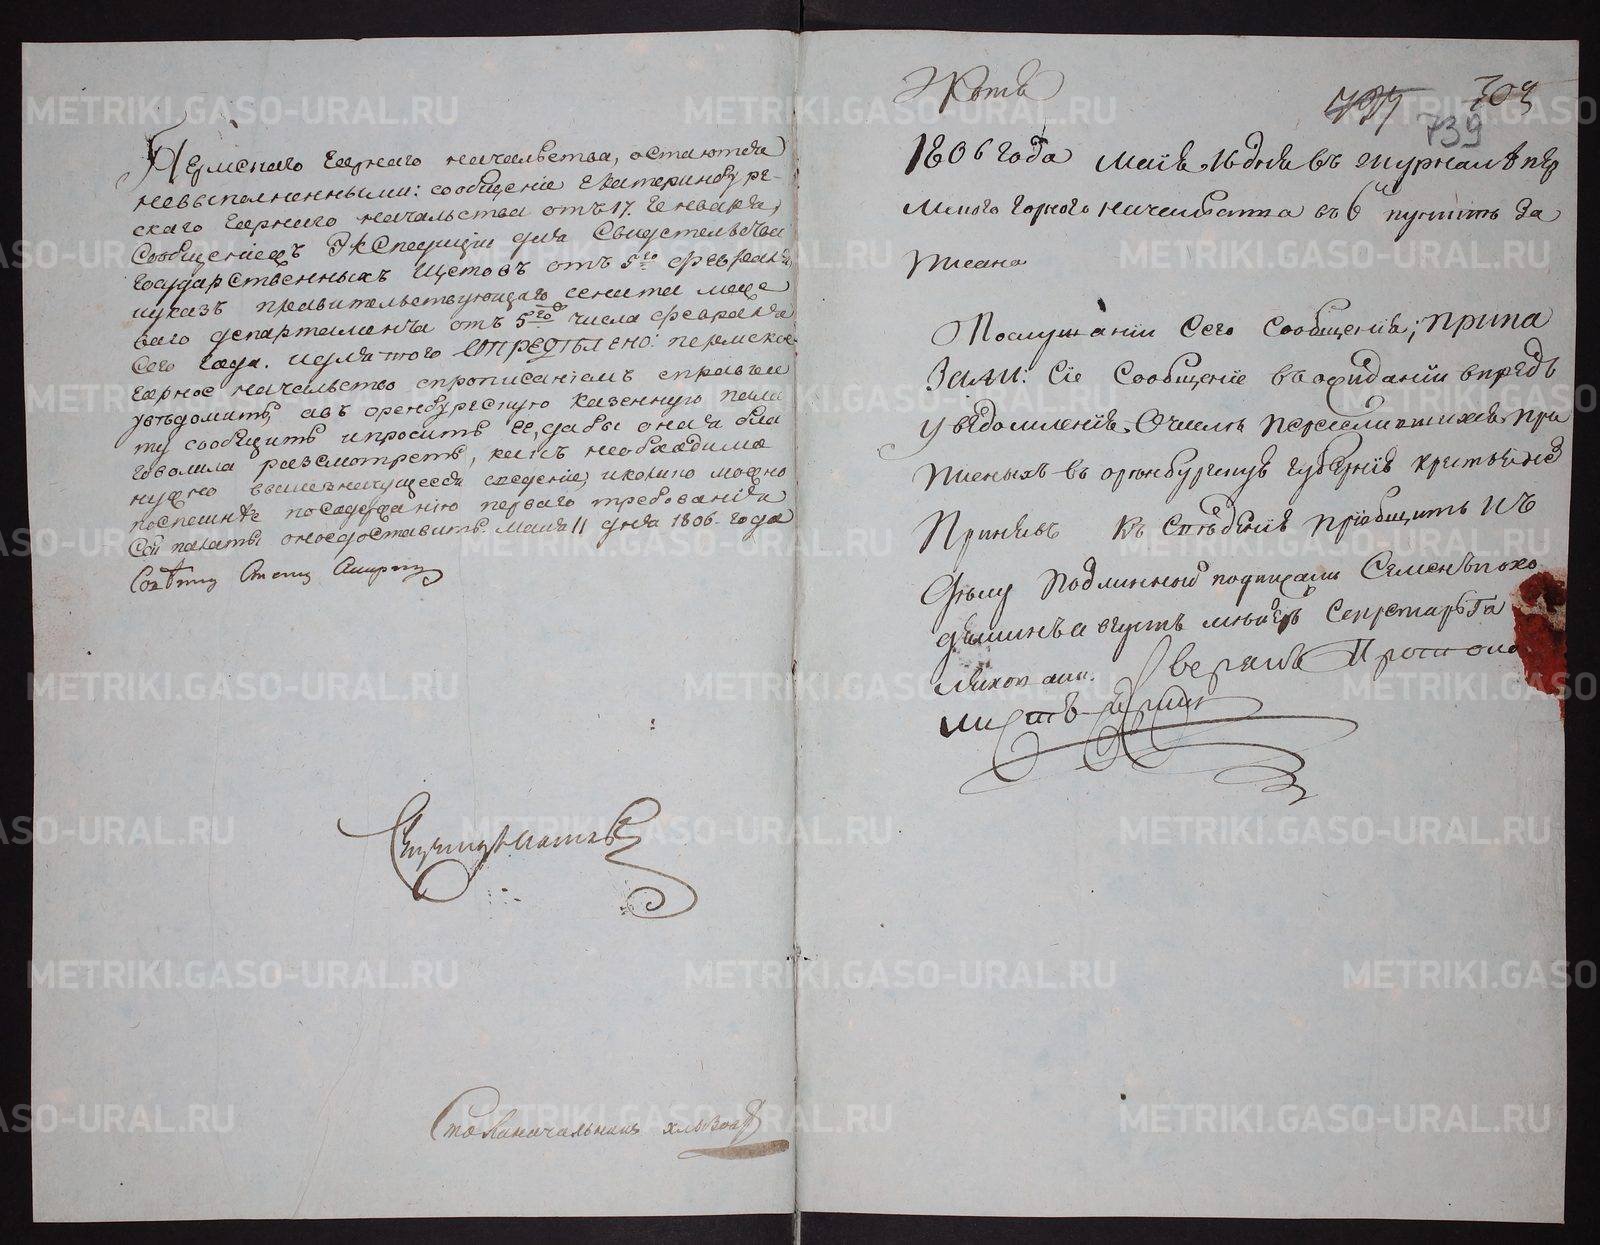 Пермскаго Горнаго начальства, остаются
невыполненными: сообщение Екатеринбург-
скаго Горнаго начальства отъ 17. Генваря,
Сообщениемъ Экспедиции для Свидетельства
государственныхъ щетовъ отъ 5го февраля,
иуказъ правительствующаго сената меже
ваго департамента отъ 5го числа февраля
сего года. идля того определено: пермское
горное начальство спрописаниемъ справки
уведомить, авъ оренбургскую казенную пала
ту сообщить ипросить ее, дабы оная бла
говолила разсмотреть, какъ необходимо
нужно вышезначущееся сведение, иколико можно
поспешнее посодержанию перваго требования
сей палаты оноедоставить. маия 11 дня 1806. года
Советникъ Степанъ Смирновъ
Столоначальникъ
709
739
1806 года Маия 16 дня въ журнале пер
мскаго горнаго начальства въ 6й пунктъ за
писано
Послушании Сего Сообщения; прика
зали: Сие Сообщение въожидании впредь
уведомления. Очисле переселившихся при
писныхъ въ оренбургскую губернию крестьянъ
Принявъ къ Сведению приобщить къ
делу Подлинной подписали Семенъ
Секретарь
Сверялъ Протоко
листъ
METRIKI.GASO-URAL.RU